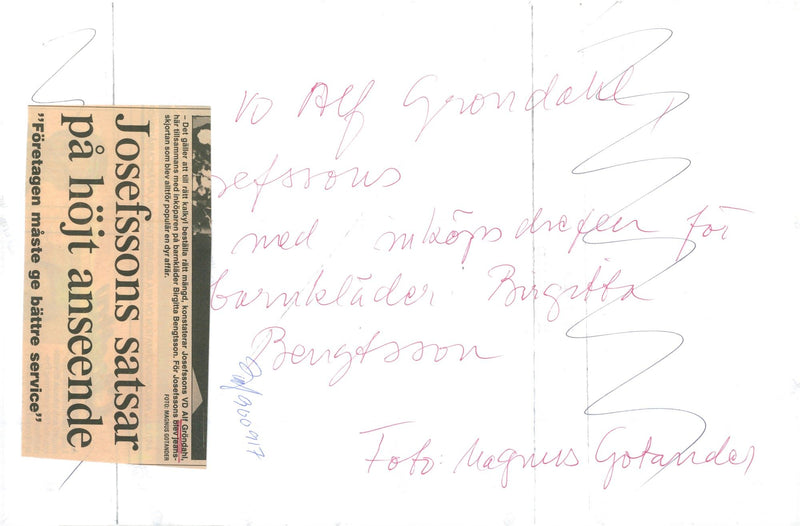 VD Alf Gröndahl,
sefssons
med inköpschefen för
barnkläder Birgitta
Bengtsson
Foto: Magnus Gotander
900917
– Det gäller att till rätt kalkyl beställa rätt mängd, konstaterar Josefssons VD Alf Gröndahl,
här tillsammans med inköparen på barnkläder Birgitta Bengtsson. För Josefssons blev jeans-
skjortan som blev alltför populär en dyr affär.
FOTO: MAGNUS GOTANDER
Josefssons satsar
på höjt anseende
”Företagen måste ge bättre service”